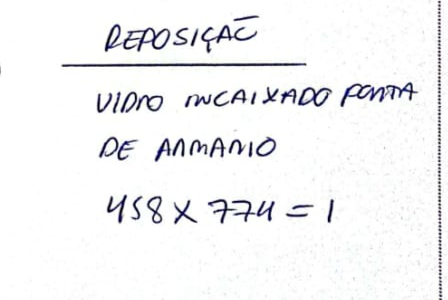 REPOSIÇÃO
VIDRO INCAIXADO PORTA
DE ARMARIO
458 X 774 = 1